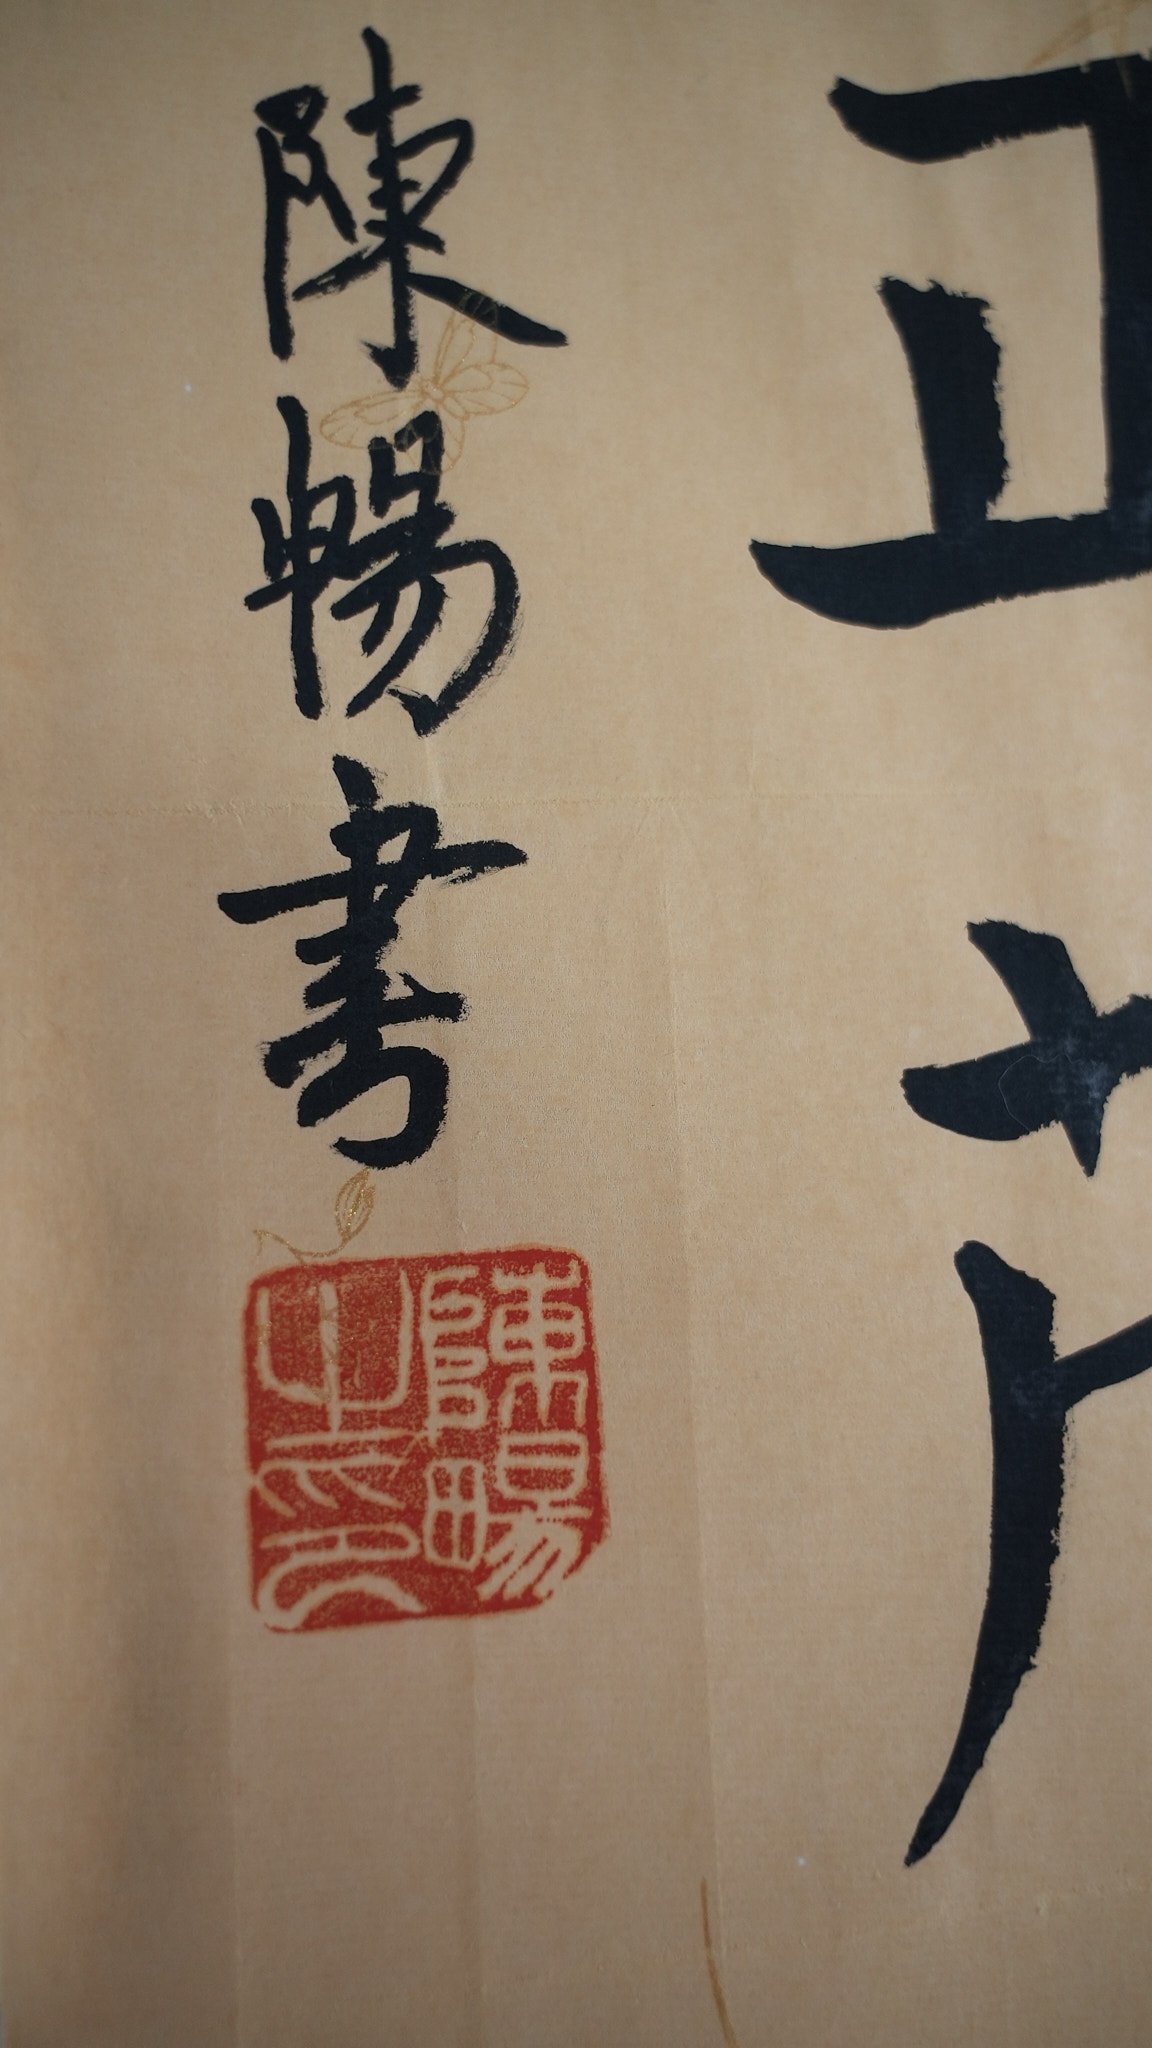 正
陳暢書
陳暢之印